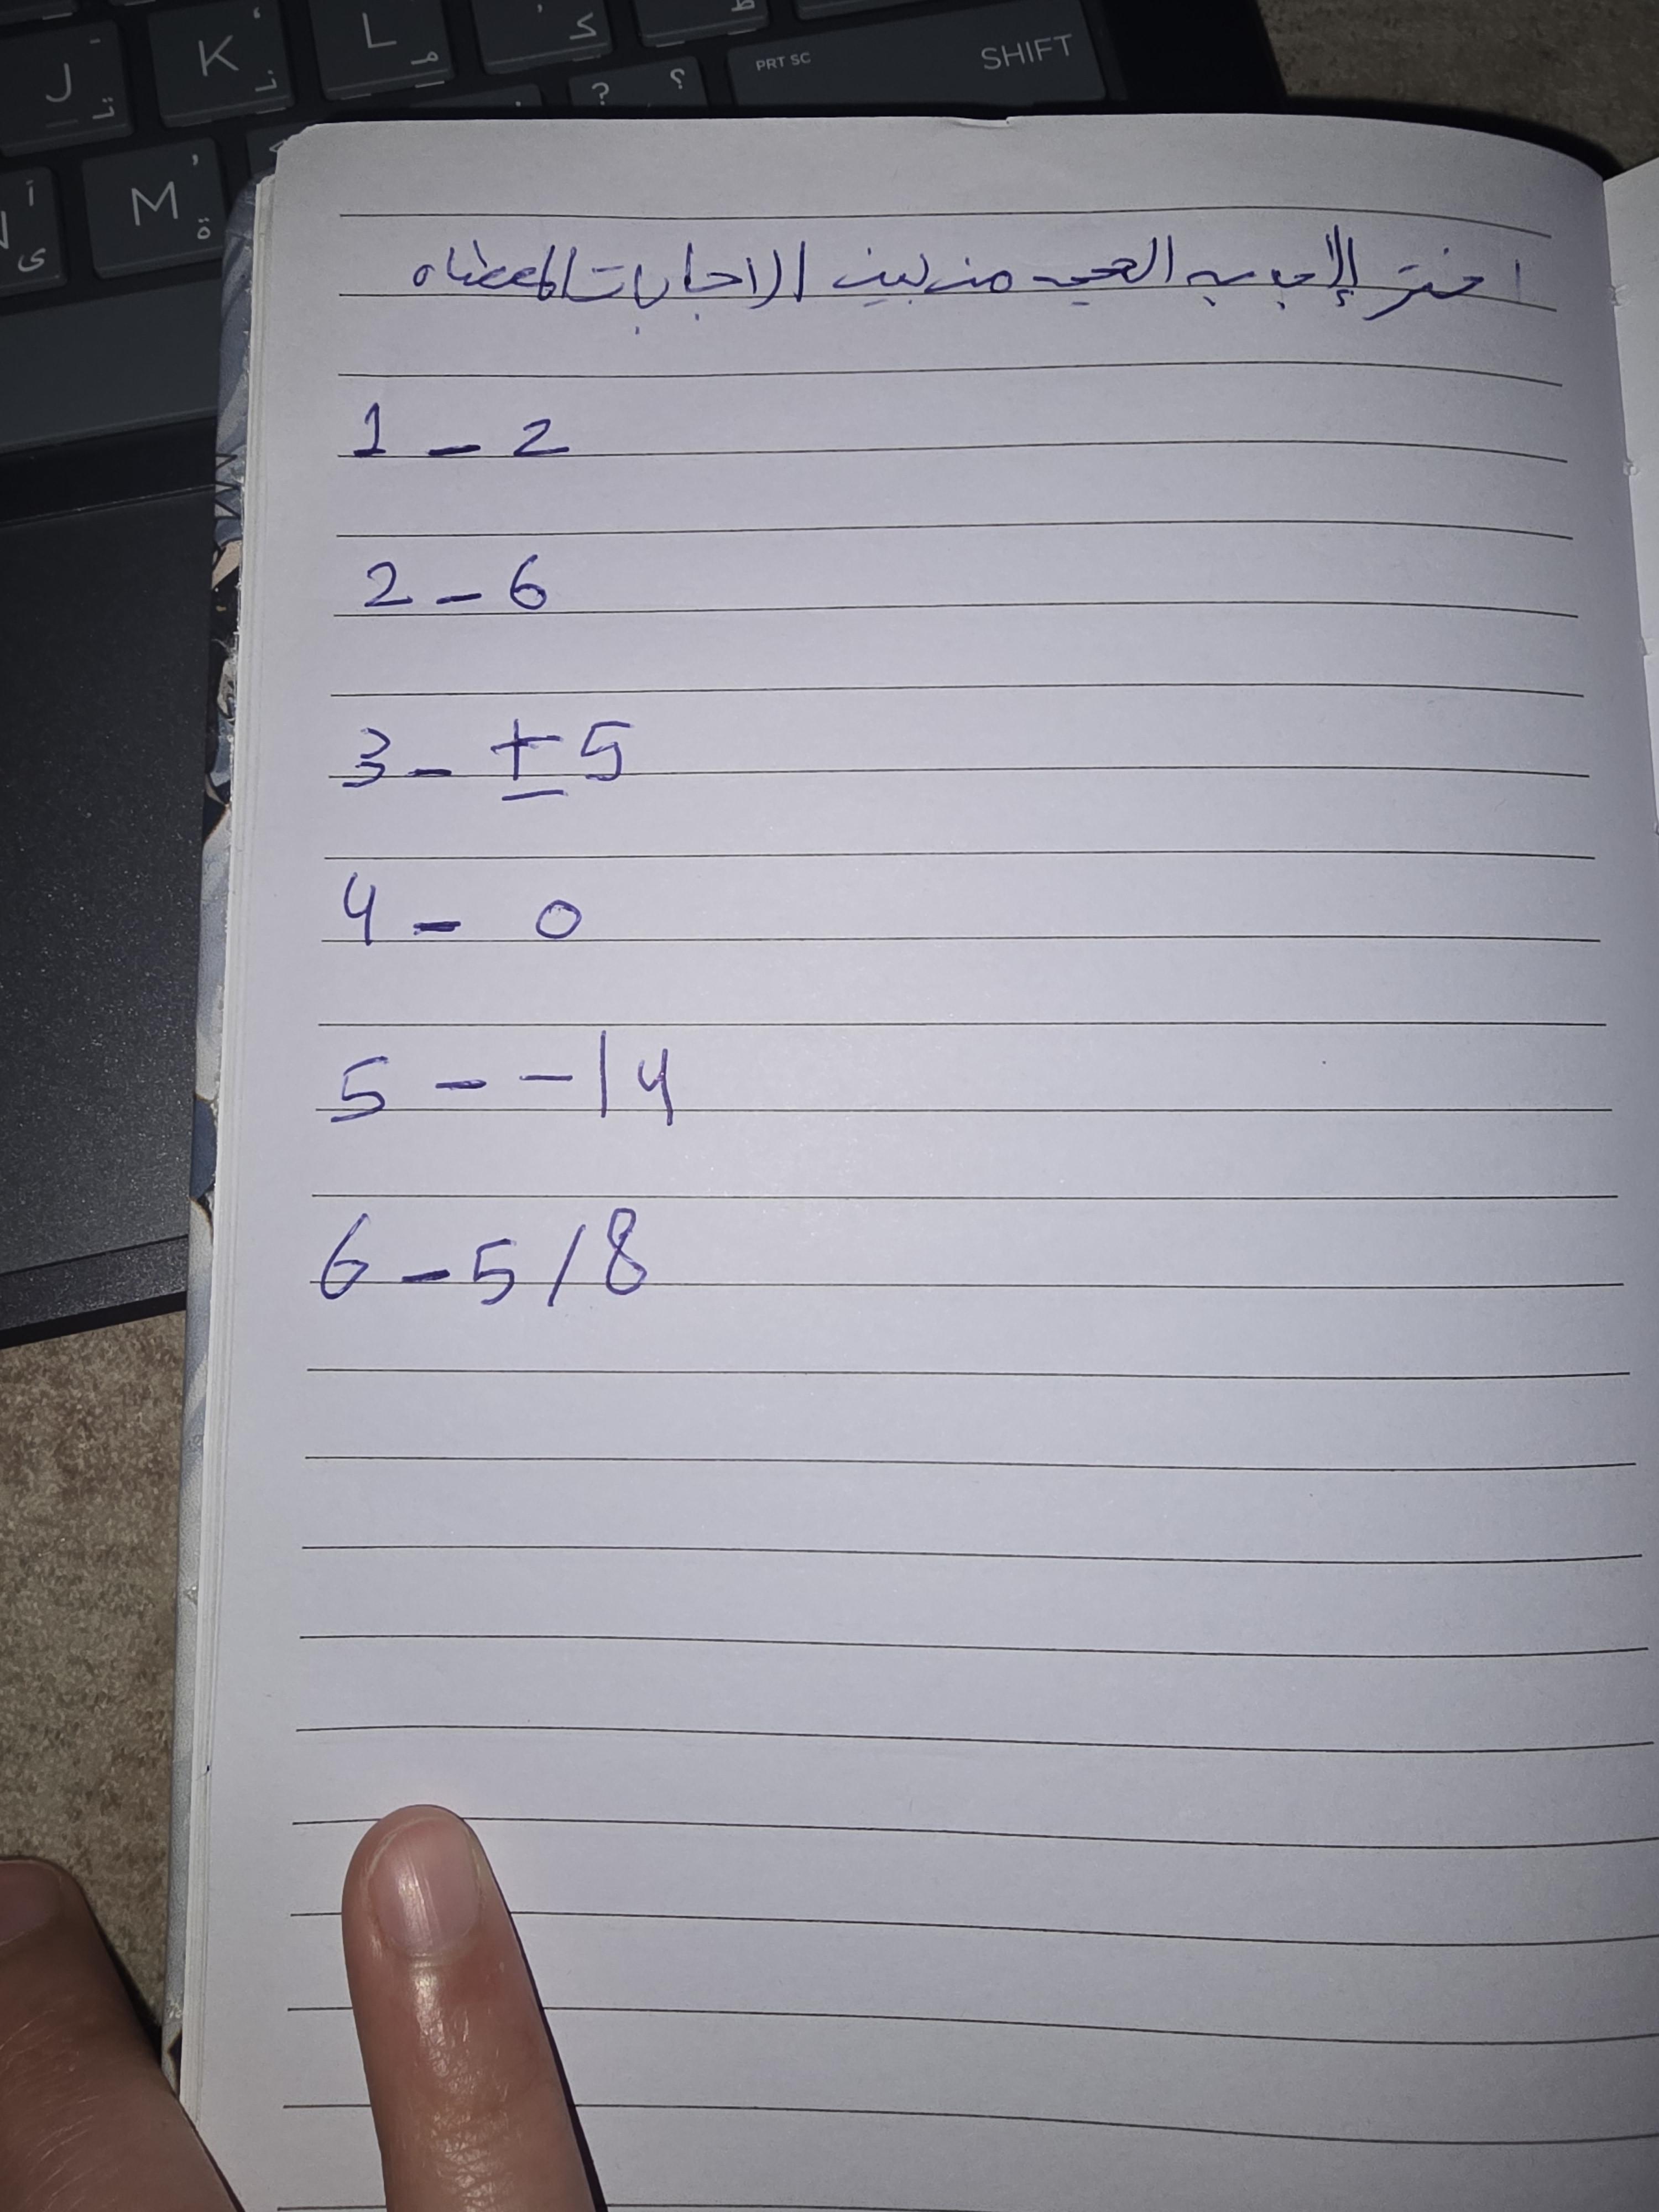 J ت
K ن
L م
ك
ط
? ؟
PRT SC SHIFT
M ة
آ ى
اختر الإجابه الصحيحه من بين الاجابات المعطاه
1 - 2
2 - 6
3 - ± 5
4 - 0
5 - -14
6 - 5/8